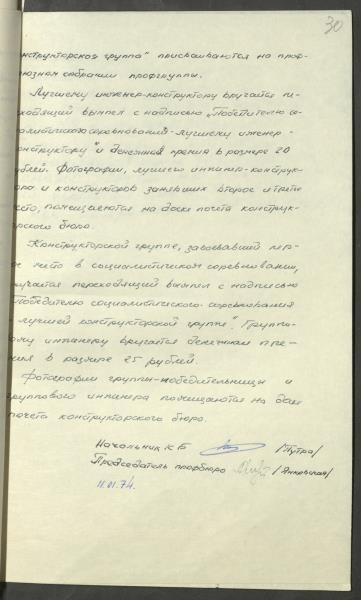 30
нструкторская группа" присваиваются на проф-
юзном собрании профгруппы.
Лучшему инженер-конструктору вручается пе-
ходящий вымпел с надписью "Победителю со-
алистического соревнования - лучшему инженер-
онструктору" и денежная премия в размере 20
рублей. Фотографии, лучшего инженер-конструк-
ора и конструкторов занявших второе и третье
есто, помещаются на доске почета конструк-
рского бюро.
Конструкторской группе, завоевавшей пер-
ое место в социалистическом соревновании,
ручается переходящий вымпел с надписью
Победителю социалистического соревнования
лучшей конструкторской группе". Группо-
ому инженеру вручается денежная пре-
мия в размере 25 рублей.
Фотографии группы-победительницы и
группового инженера помещаются на дос
почета конструкторского бюро.
Начальник КБ /Путра/
Председатель профбюро /Янковская/
11.01.74.